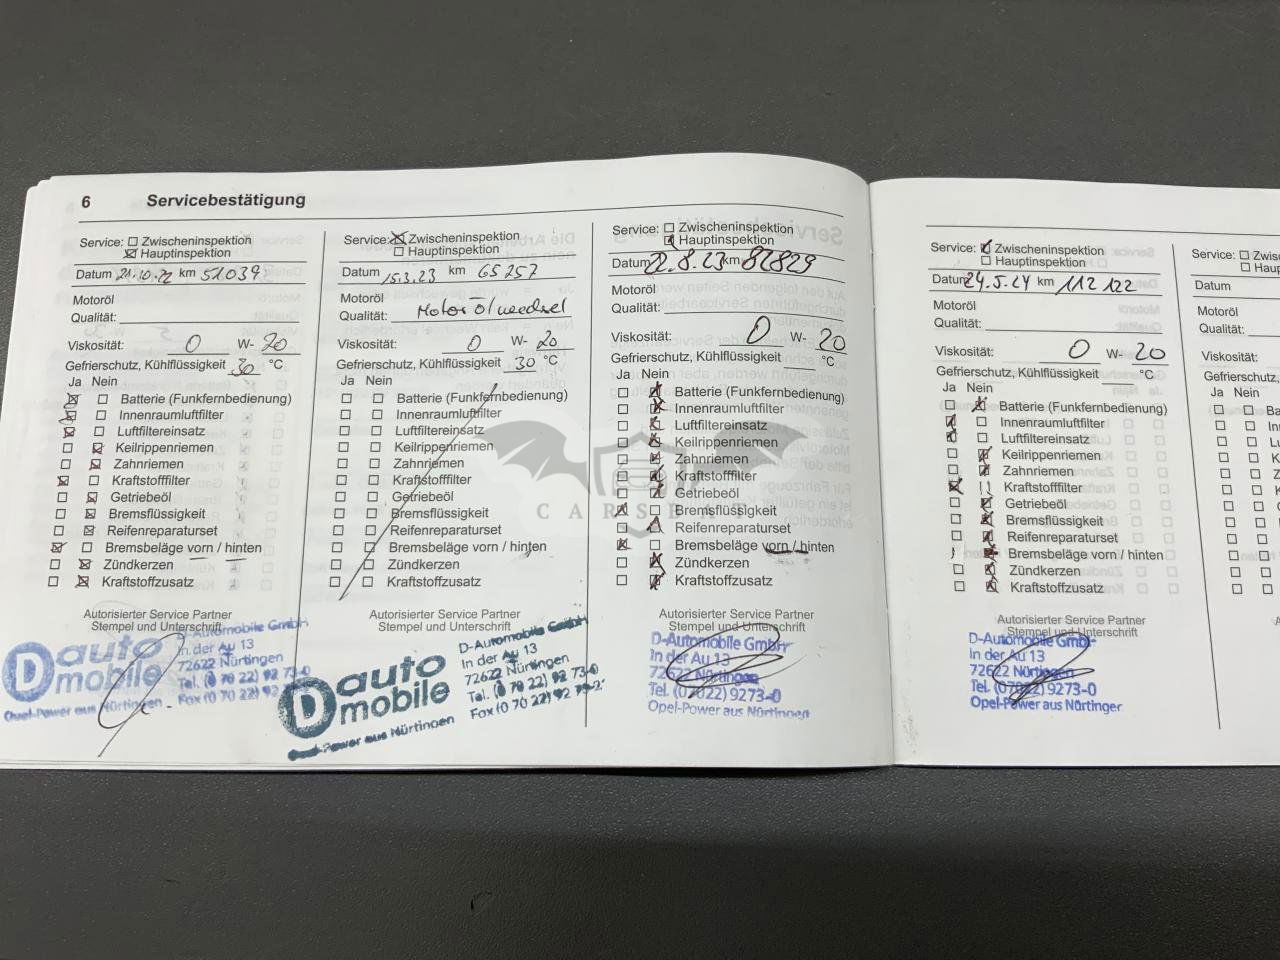 6 Servicebestätigung
Service: Zwischeninspektion
Hauptinspektion
Datum 21.10.22 km 51039
Motoröl
Qualität:
Viskosität: 0 W- 20
Gefrierschutz, Kühlflüssigkeit 30 °C
Ja Nein
Batterie (Funkfernbedienung)
Innenraumluftfilter
Luftfiltereinsatz
Keilrippenriemen
Zahnriemen
Kraftstofffilter
Getriebeöl
Bremsflüssigkeit
Reifenreparaturset
Bremsbeläge vorn / hinten
Zündkerzen
Kraftstoffzusatz
Autorisierter Service Partner
Stempel und Unterschrift
D auto mobile
D-Automobile GmbH
In der Au 13
72622 Nürtingen
Tel. (0 70 22) 92 73-0
Fax (0 70 22) 92
Opel-Power aus Nürtingen
Service: Zwischeninspektion
Hauptinspektion
Datum 15.3.23 km 65257
Motoröl
Qualität: Motorölwechsel
Viskosität: 0 W- 20
Gefrierschutz, Kühlflüssigkeit 30 °C
Ja Nein
Batterie (Funkfernbedienung)
Innenraumluftfilter
Luftfiltereinsatz
Keilrippenriemen
Zahnriemen
Kraftstofffilter
Getriebeöl
Bremsflüssigkeit
Reifenreparaturset
Bremsbeläge vorn / hinten
Zündkerzen
Kraftstoffzusatz
Autorisierter Service Partner
Stempel und Unterschrift
D auto mobile
D-Automobile GmbH
In der Au 13
72622 Nürtingen
Tel. (0 70 22) 92 73-0
Fax (0 70 22) 92
Opel-Power aus Nürtingen
Service: Zwischeninspektion
Hauptinspektion
Datum 22.8.23 km 82829
Motoröl
Qualität:
Viskosität: 0 W- 20
Gefrierschutz, Kühlflüssigkeit °C
Ja Nein
Batterie (Funkfernbedienung)
Innenraumluftfilter
Luftfiltereinsatz
Keilrippenriemen
Zahnriemen
Kraftstofffilter
Getriebeöl
Bremsflüssigkeit
Reifenreparaturset
Bremsbeläge vorn / hinten
Zündkerzen
Kraftstoffzusatz
Autorisierter Service Partner
Stempel und Unterschrift
D-Automobile GmbH
In der Au 13
72622 Nürtingen
Tel. (07022) 9273-0
Opel-Power aus Nürtingen
Service: Zwischeninspektion
Hauptinspektion
Datum 24.5.24 km 112122
Motoröl
Qualität:
Viskosität: 0 W- 20
Gefrierschutz, Kühlflüssigkeit °C
Ja Nein
Batterie (Funkfernbedienung)
Innenraumluftfilter
Luftfiltereinsatz
Keilrippenriemen
Zahnriemen
Kraftstofffilter
Getriebeöl
Bremsflüssigkeit
Reifenreparaturset
Bremsbeläge vorn / hinten
Zündkerzen
Kraftstoffzusatz
Autorisierter Service Partner
Stempel und Unterschrift
D-Automobile GmbH
In der Au 13
72622 Nürtingen
Tel. (07022) 9273-0
Opel-Power aus Nürtingen
Service:
Datum
Motoröl
Qualität:
Viskosität:
Ja Nein